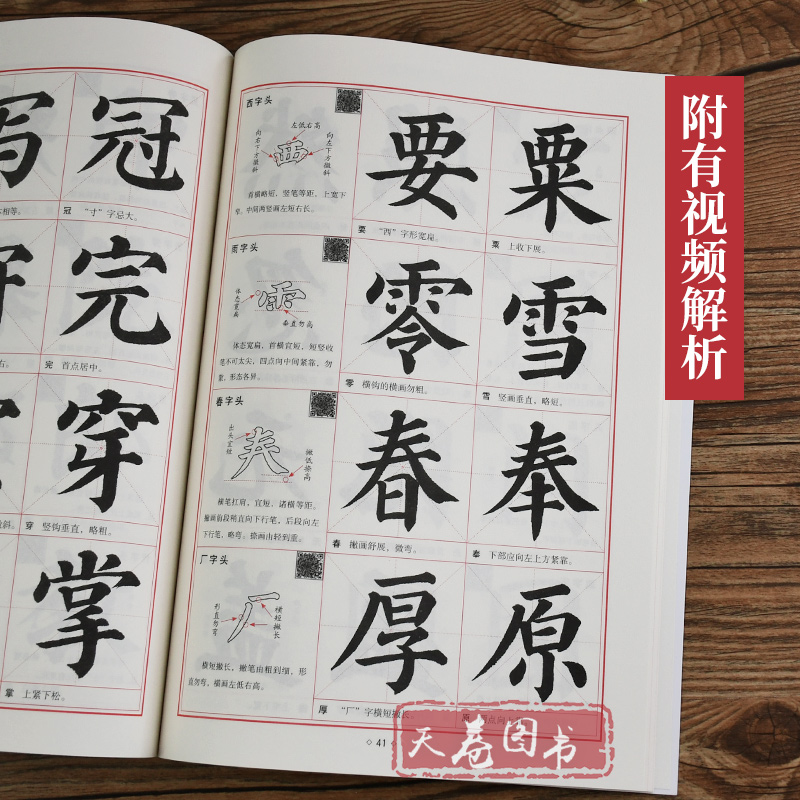 冠
相等。
冠 “寸”字忌大。
完
右。
完 首点居中。
穿
斜。
穿 竖钩垂直，略粗。
掌
掌 上紧下松。
西字头
左低右高
向右下方撇斜
向左下方撇斜
首横略短，竖笔等距，上宽下
窄。中间两竖画左短右长。
要
要 “西”字形宽扁。
粟
粟 上收下展。
雨字头
体态宽扁
垂直勿高
体态宽扁，首横宜短，短竖收
笔不可太尖，四点向中间紧靠，勿
重，形态各异。
零
零 横钩的横画勿粗。
雪
雪 竖画垂直，略短。
春字头
出头宜短
撇低捺高
横笔扛肩，宜短，诸横等距。
撇画前段稍直向下行笔，后段向左
下行笔，略弯。捺画由轻到重。
春
春 撇画舒展，微弯。
奉
奉 下部应向左上方紧靠。
厂字头
形直勿弯
横短撇长
横短撇长，撇笔由粗到细，形
直勿弯，横画左低右高。
厚
厚 “厂”字横短撇长。
原
原
◇ 41
附有视频解析
天卷图书